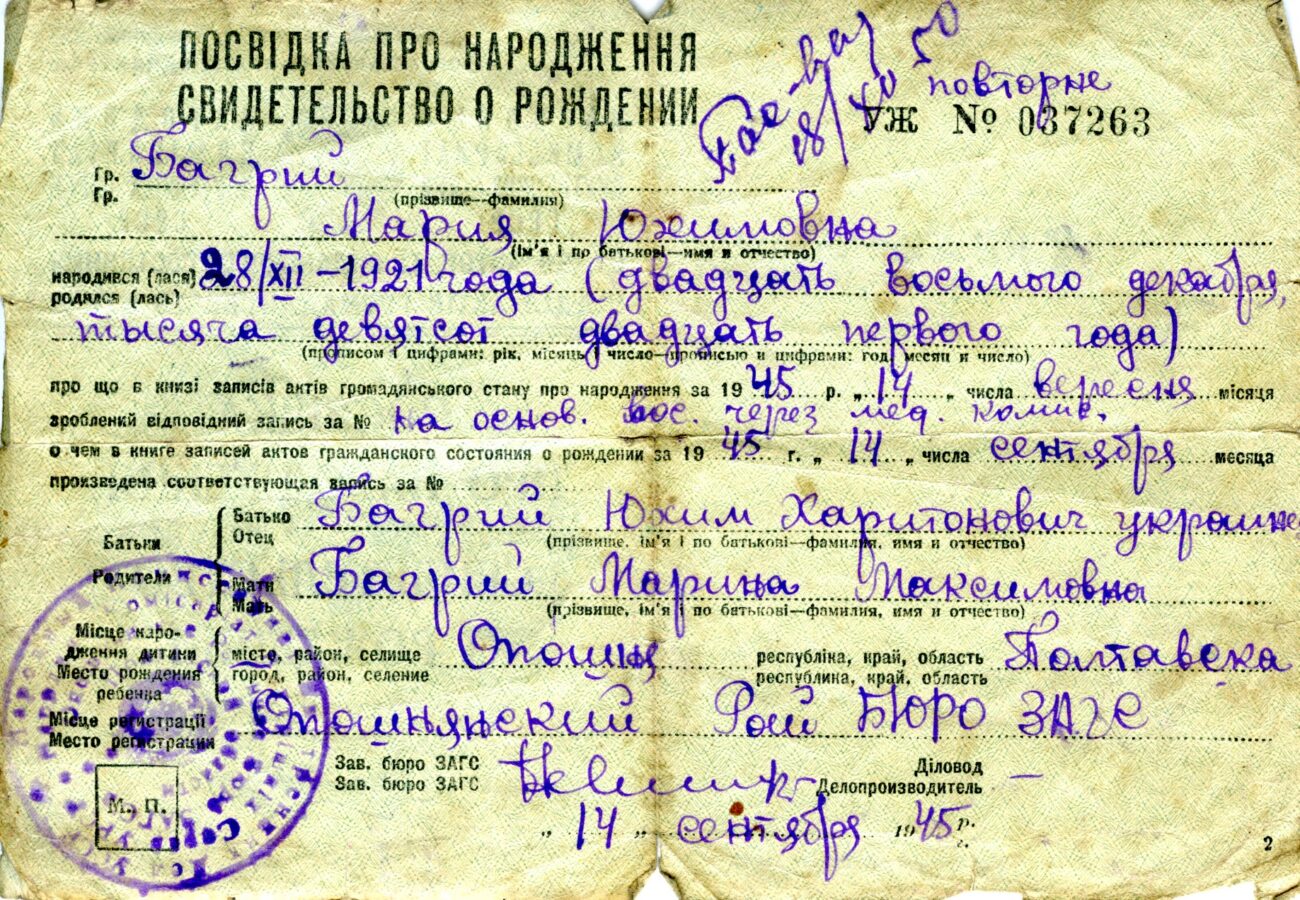 ПОСВІДКА ПРО НАРОДЖЕННЯ
СВИДЕТЕЛЬСТВО О РОЖДЕНИИ
50
повторне
УЖ № 037263
Гр. Багрий
Гр.
(прізвище—фамилия)
Мария Юхимовна
(ім'я і по батькові—имя и отчество)
народився (лася) 28/XII – 1921 года (двадцать восьмого декабря,
родился (лась)
тысяча девятсот двадцать первого года)
(прописом і цифрами: рік, місяць і число—прописью и цифрами: год, месяц и число)
про що в книзі записів актів громадянського стану про народження за 1945 р. „14„ числа вересня місяця
зроблений відповідний запись за № на основ. вос. через мед. комис.
о чем в книге записей актов гражданского состояния о рождении за 1945 г. „14„ числа сентября месяца
произведена соответствующая запись за №
Батьки
Родители
Батько Багрий Юхим Харитонович украине
Отец
(прізвище, ім'я і по батькові—фамилия, имя и отчество)
Мати Багрий Марина Максимовна
Мать
(прізвище, ім'я і по батькові—фамилия, имя и отчество)
Місце наро-
дження дитини
Место рождения
ребенка
місто, район, селище Опошн республіка, край, область Полтавска
город, район, селение республика, край, область
Місце регистрації Опошнянский Рай БЮРО ЗАГС
Место регистрации
Зав. бюро ЗАГС Діловод –
Зав. бюро ЗАГС Делопроизводитель
М. П.
„14„ сентября 1945 р.
г.
2